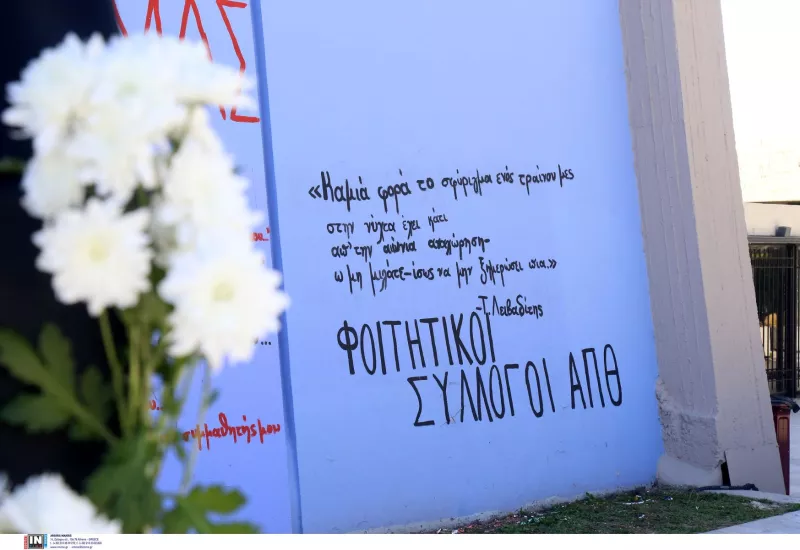 ΑΣ
«Καμιά φορά το σφύριγμα ενός τραίνου μες
στην νύχτα έχει κάτι
απ' την αιώνια αποχώρηση-
ω μη μιλάτε-ίσως να μην ξημερώσει πια.»
-Τ. Λειβαδίτης
ΦΟΙΤΗΤΙΚΟΙ
ΣΥΛΛΟΓΟΙ ΑΠΘ
συμμαθητής μου
IN